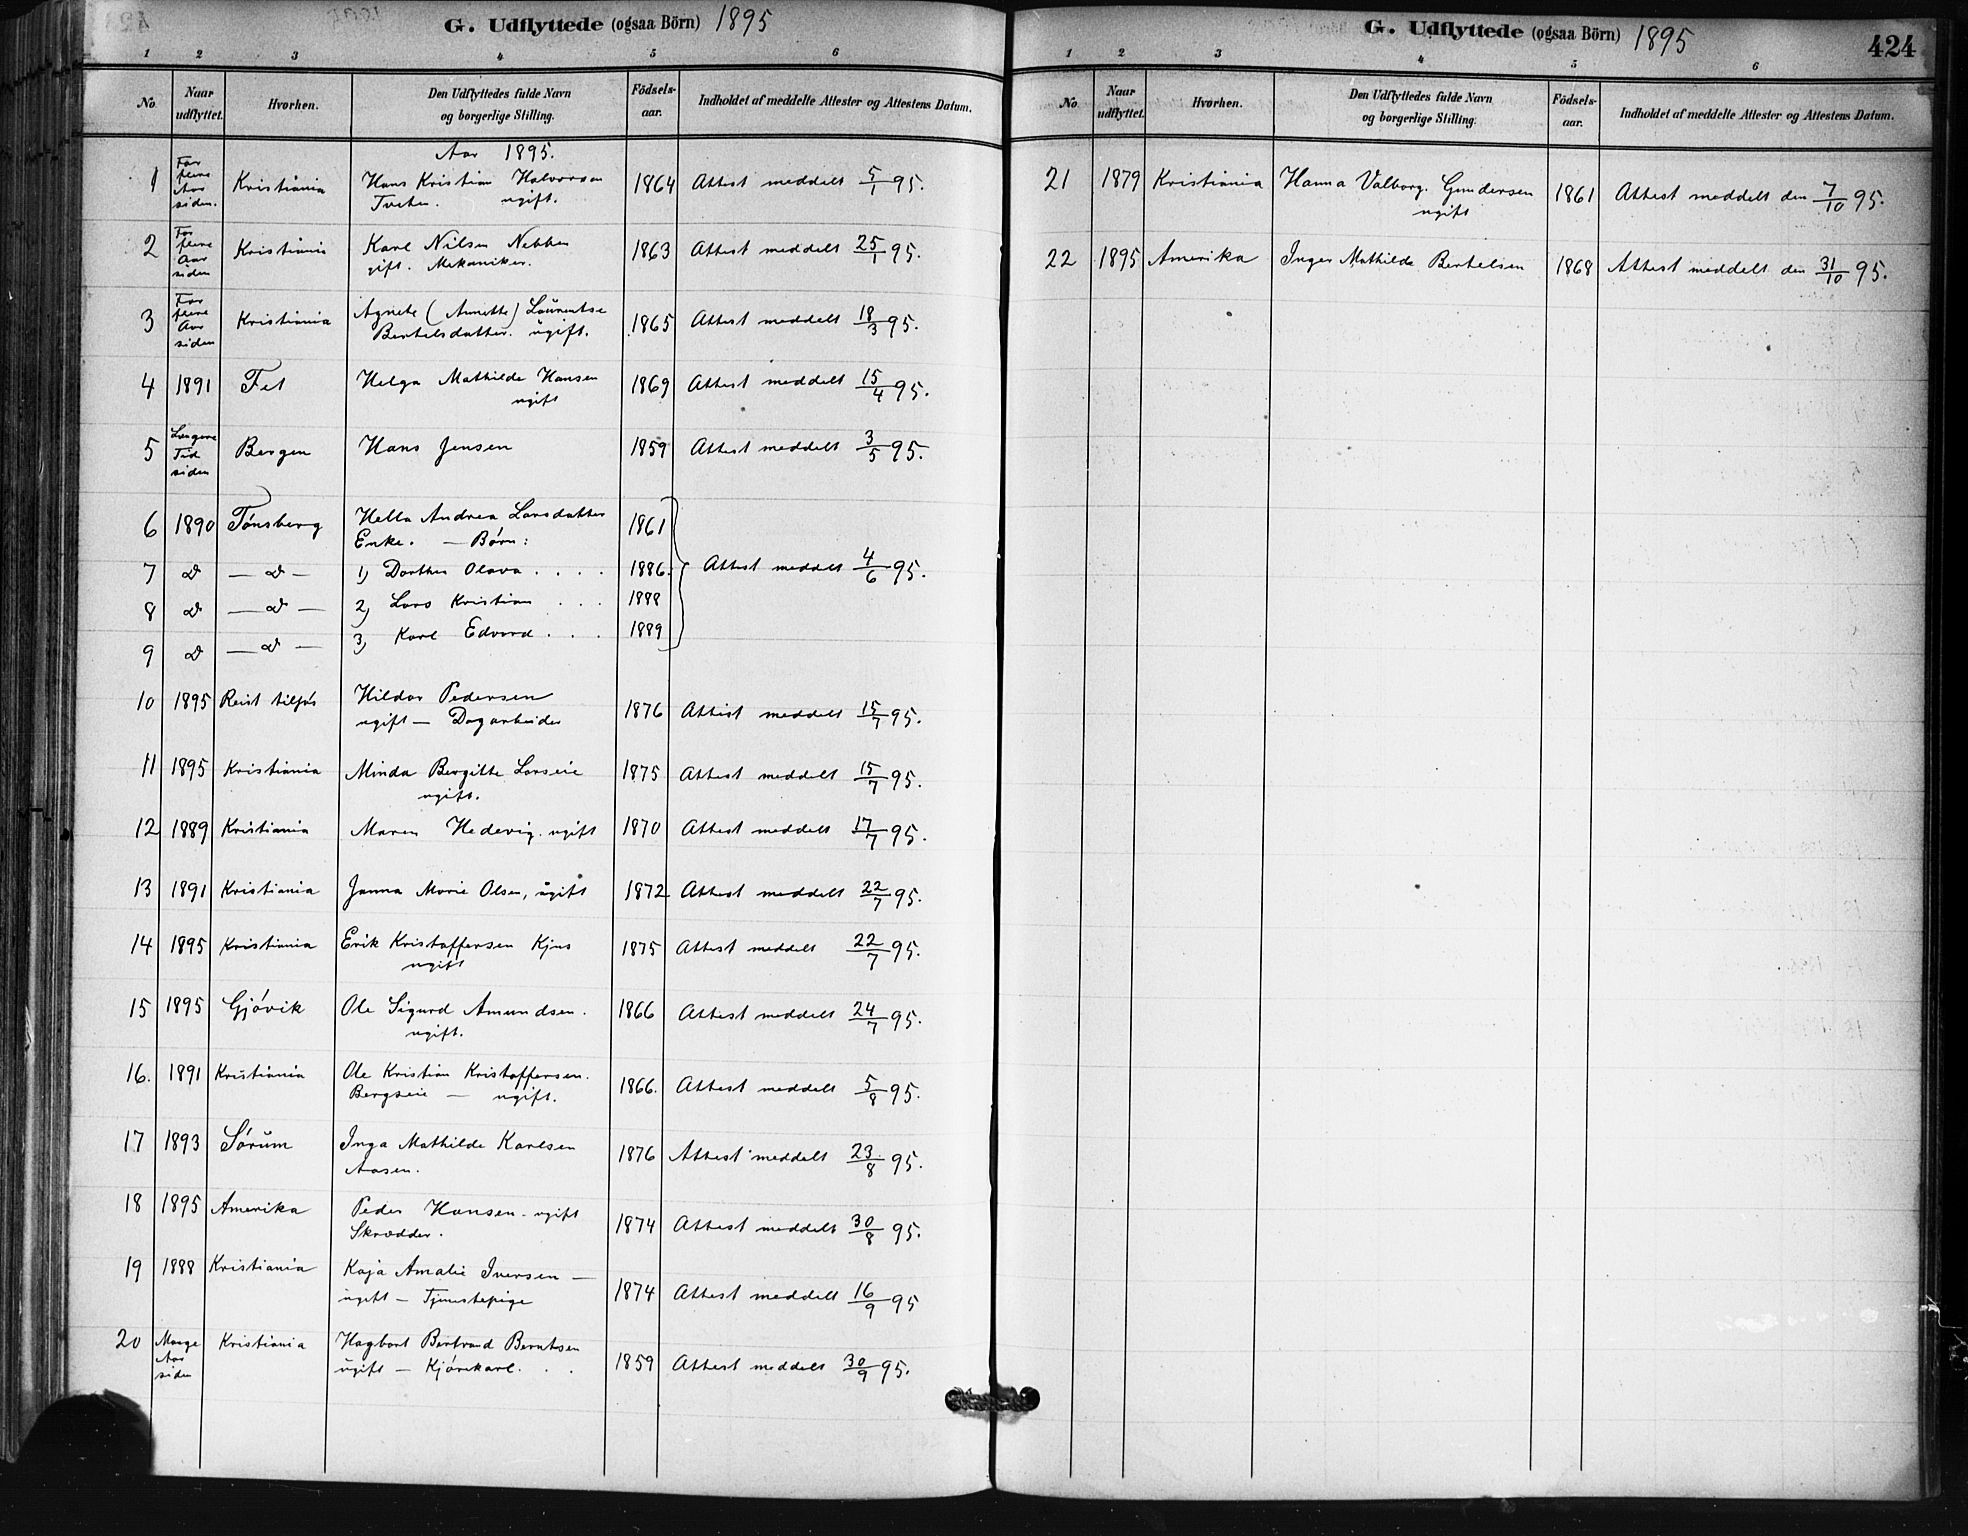 G. Udflyttede (ogsaa Börn) 1895
1 2 3 4 5 6
No Naar udflyttet. Hvorhen. Den Udflyttedes fulde Navn og borgerlige Stilling. Födsels-aar. Indholdet af meddelte Attester og Attestens Datum.
Aar 1895.
1 For flere Aar siden. Kristiania Hans Kristian Halvorsen Tveten. ugift. 1864 Attest meddelt 5/1 95.
2 For flere Aar siden Kristiania Karl Nilsen Nebben gift. Mekaniker. 1863 Attest meddelt 25/1 95.
3 For flere Aar siden Kristiania Agnete (Annette) Laurentse Bertelsdatter. ugift. 1865 Attest meddelt 18/3 95.
4 1891 Fet Helga Mathilde Hansen ugift 1869 Attest meddelt 15/4 95.
5 Længere Tid siden Bergen Hans Jensen 1859 Attest meddelt 3/5 95.
6 1890 Tönsberg Hella Andrea Larsdatter Enke. — Börn: 1861
7 d — d — 1) Dorthea Olava . . . . 1886. Attest meddelt 4/6 95.
8 d — d — 2) Lars Kristian . . . 1888
9 d — d — 3) Karl Edvard . . . 1889
10 1895 Reist tilsjös Hildor Pedersen ugift — Dagarbeider 1876 Attest meddelt 15/7 95.
11 1895 Kristiania Minda Bergitte Larseie ugift. 1875 Attest meddelt 15/7 95.
12 1889 Kristiania Maren Hedevig. ugift 1870 Attest meddelt 17/7 95.
13 1891 Kristiania Janna Marie Olsen, ugift 1872 Attest meddelt 22/7 95.
14 1895 Kristiania Erik Kristoffersen Kjus ugift 1875 Attest meddelt 22/7 95.
15 1895 Gjövik Ole Sigurd Amundsen. ugift. 1866 Attest meddelt 24/7 95.
16. 1891 Kristiania Ole Kristian Kristoffersen. Bergseie — ugift. 1866. Attest meddelt 5/8 95.
17 1893 Sörum Inga Mathilde Karlsen Aasen. 1876 Attest meddelt 23/8 95.
18 1895 Amerika Peder Hansen. ugift Skrædder. 1874 Attest meddelt 30/8 95.
19 1888 Kristiania Kaja Amalie Iversen — ugift — Tjenestepige 1874 Attest meddelt 16/9 95
20 Mange Aar siden Kristiania Hagbart Bertrand Berntsen ugift — Kjörekarl. . . 1859 Attest meddelt 30/9 95.
G. Udflyttede (ogsaa Börn) 1895 424
1 2 3 4 5 6
No Naar udflyttet. Hvorhen. Den Udflyttedes fulde Navn og borgerlige Stilling. Födsels-aar. Indholdet af meddelte Attester og Attestens Datum.
21 1879 Kristiania Hanna Valborg. Gundersen ugift 1861 Attest meddelt den 7/10 95.
22 1895 Amerika Inger Mathilde Bertelsen 1868 Attest meddelt den 31/10 95.